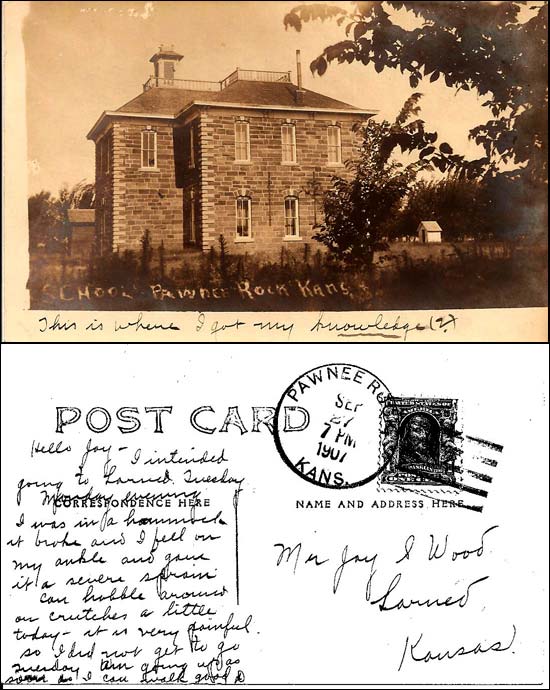 SCHOOL PAWNEE ROCK KANS.
This is where I got my knowledge(?)
POST CARD
PAWNEE RO
SEP
27
7 PM
1907
KANS.
Hello Joy – I intended
going to Larned Tuesday
Monday evening
CORRESPONDENCE HERE
NAME AND ADDRESS HERE
I was in a hammock
it broke and I fell on
my ankle and gave
it a severe sprain
can hobble around
on crutches a little
today – it is very painful
so I did not get to go
Tuesday am going up as
soon as I can walk good
Mr Joy S Wood
Larned,
Kansas.